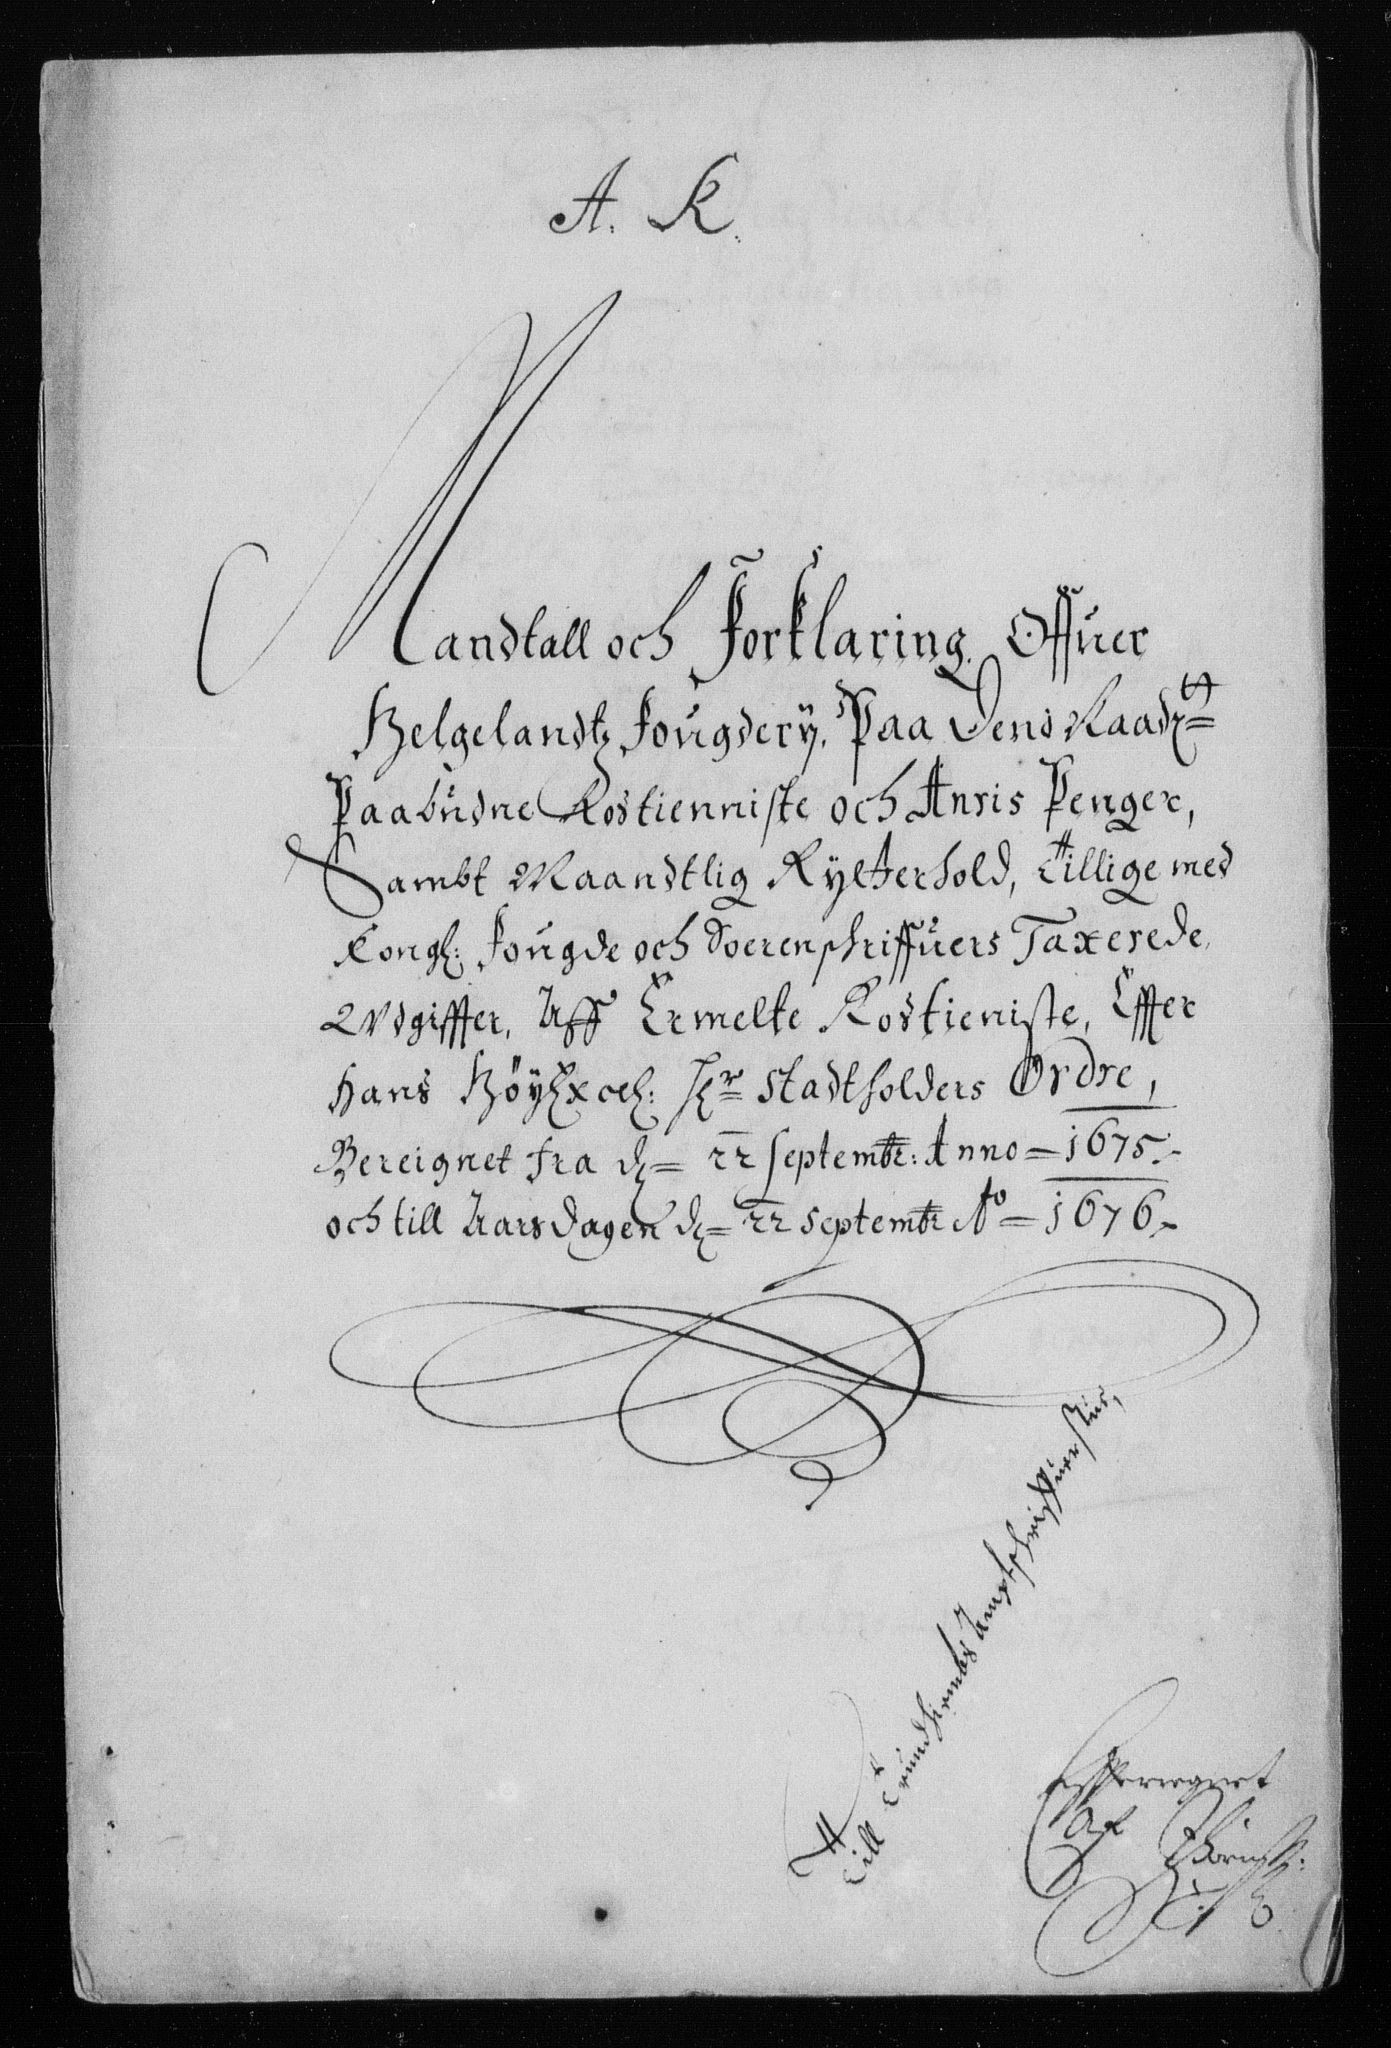 A. K.
Mandtall och Forklaring Offuer
Helgelandtz fougderÿ, Paa Dend Naadr=
Paabudne Rostienniste och Andris Penger,
Sambt Maandtlig Rytterhold, Tillige med
Kongl: fougde och Soerenschriffuers Taxerede,
Udgiffter, Aff Ermelte Rostieniste, Effter
Hans HöyExcel: Hr Stadtholders Ordre,
Bereignet fra d= 22 septembr: Anno = 1675.
och till Aarsdagen d= 22 septembr Ao = 1676.
Till Trundhiembs Amptschriffuerstue,
Efftereegnet
Af